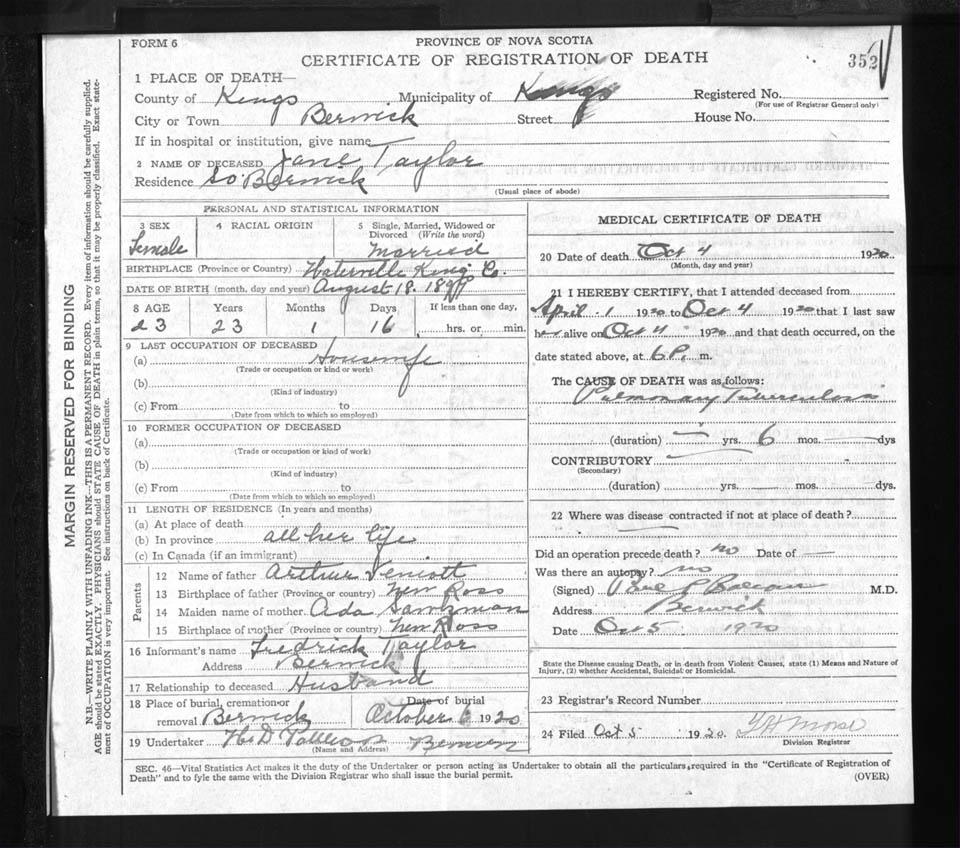 FORM 6
PROVINCE OF NOVA SCOTIA
CERTIFICATE OF REGISTRATION OF DEATH
352
1 PLACE OF DEATH—
County of Kings Municipality of Kings Registered No.
(For use of Registrar General only)
City or Town Berwick Street House No.
If in hospital or institution, give name
2 NAME OF DECEASED Jane Taylor
Residence So. Berwick
(Usual place of abode)
PERSONAL AND STATISTICAL INFORMATION
3 SEX Female
4 RACIAL ORIGIN
5 Single, Married, Widowed or Divorced (Write the word)
Married
BIRTHPLACE (Province or Country) Waterville Kings Co.
DATE OF BIRTH (month, day and year) August 18. 1897
8 AGE Years Months Days If less than one day,
23 23 1 16 hrs. or min.
9 LAST OCCUPATION OF DECEASED
(a) Housewife
(Trade or occupation or kind or work)
(b)
(Kind of industry)
(c) From to
(Date from which to which so employed)
10 FORMER OCCUPATION OF DECEASED
(a)
(Trade or occupation or kind of work)
(b)
(Kind of industry)
(c) From to
(Date from which to which so employed)
11 LENGTH OF RESIDENCE (In years and months)
(a) At place of death
(b) In province all her life
(c) In Canada (if an immigrant)
Parents
12 Name of father Arthur
13 Birthplace of father (Province or country) New Ross
14 Maiden name of mother Ada
15 Birthplace of mother (Province or country) New Ross
16 Informant's name Fredrick Taylor
Address Berwick
17 Relationship to deceased Husband
18 Place of burial, cremation or removal Berwick
Date of burial October 6 1920
19 Undertaker H. D.
(Name and Address)
MEDICAL CERTIFICATE OF DEATH
20 Date of death Oct 4 1920
(Month, day and year)
21 I HEREBY CERTIFY, that I attended deceased from
April 1 1920 to Oct 4 1920 that I last saw
her alive on Oct 4 1920 and that death occurred, on the
date stated above, at 6 P. m.
The CAUSE OF DEATH was as follows:
Pulmonary Tuberculosis
(duration) — yrs. 6 mos. — dys
CONTRIBUTORY
(Secondary)
(duration) yrs. mos. dys.
22 Where was disease contracted if not at place of death?
Did an operation precede death? no Date of —
Was there an autopsy? no
(Signed) M.D.
Address Berwick
Date Oct 5 1920
State the Disease causing Death, or in death from Violent Causes, state (1) Means and Nature of
Injury, (2) whether Accidental, Suicidal or Homicidal.
23 Registrar's Record Number
24 Filed Oct 5 1920. Morse
Division Registrar
SEC. 46—Vital Statistics Act makes it the duty of the Undertaker or person acting as Undertaker to obtain all the particulars, required in the "Certificate of Registration of
Death" and to fyle the same with the Division Registrar who shall issue the burial permit.
(OVER)
MARGIN RESERVED FOR BINDING
N.B.—WRITE PLAINLY WITH UNFADING INK—THIS IS A PERMANENT RECORD. Every item of information should be carefully supplied.
AGE should be stated EXACTLY. PHYSICIANS should STATE CAUSE OF DEATH in plain terms, so that it may be properly classified. Exact state-
ment of OCCUPATION is very important. See instructions on back of Certificate.